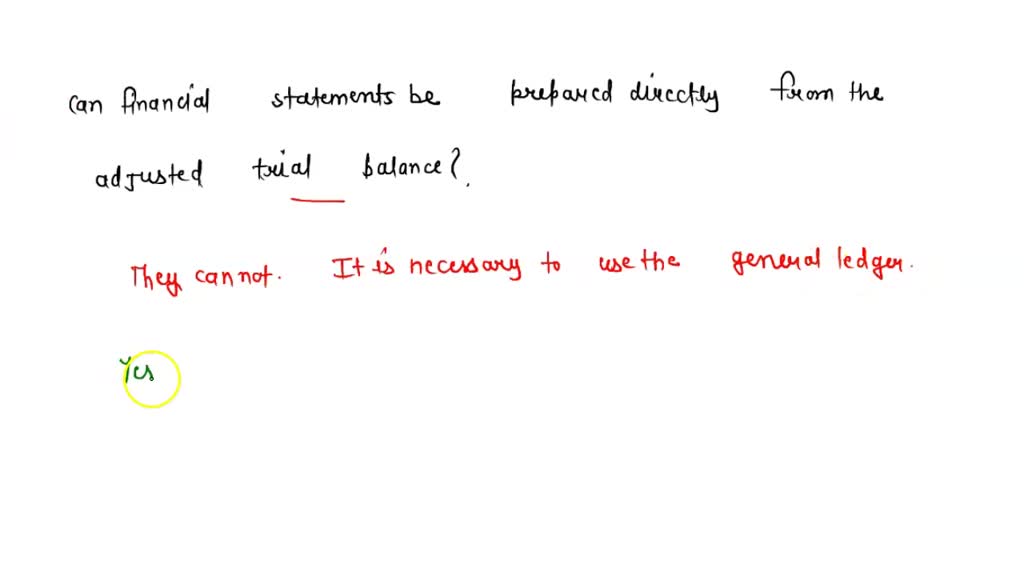 can financial statements be prepared directly from the
adjusted trial balance?
They cannot. It is necessary to use the general ledger.
Yes